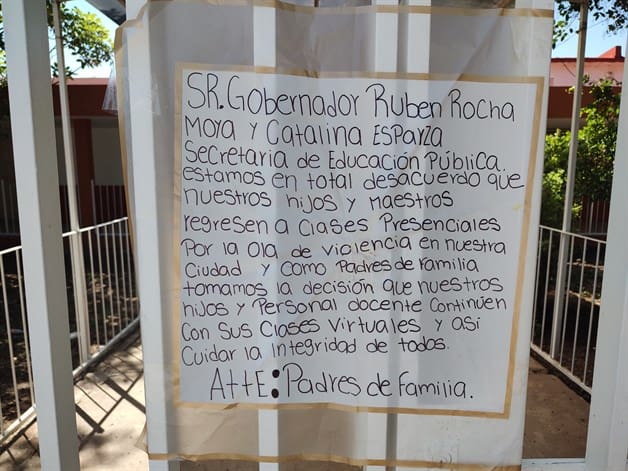 SR. Gobernador Ruben Rocha
Moya y Catalina Esparza
Secretaria de Educación Pública.
estamos en total desacuerdo que
nuestros hijos y maestros
regresen a Clases Presenciales
Por la ola de violencia en nuestra
Ciudad y como Padres de Familia
tomamos la decisión que nuestros
hijos y Personal docente continúen
Con sus Clases Virtuales y asi
Cuidar la integridad de todos.
AttE: Padres de Familia.